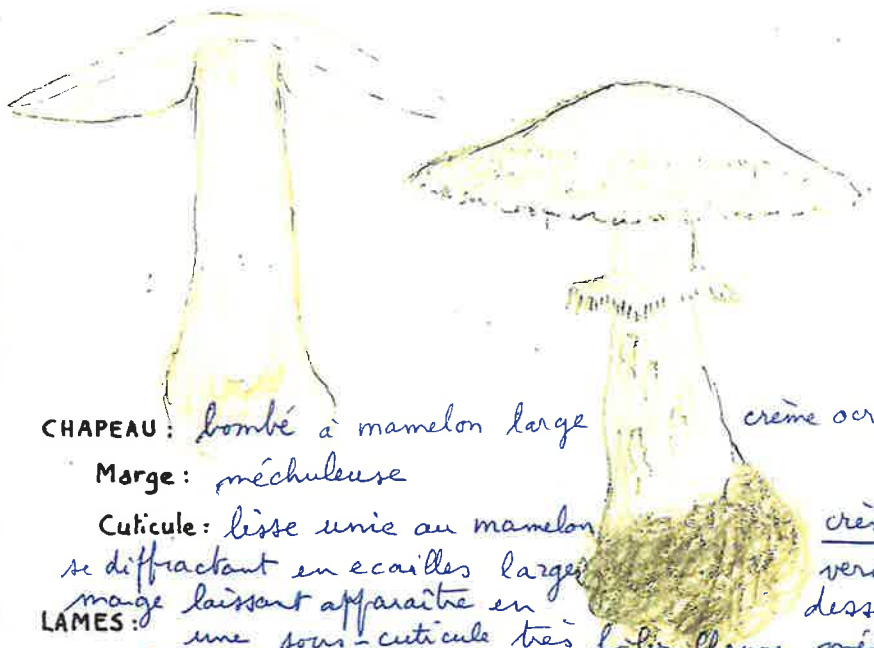 CHAPEAU: bombé à mamelon large crème ocr
Marge: méchuleuse
Cuticule: lisse unie au mamelon crè
se diffractant en ecailles larges ver
marge laissant apparaître en dess
LAMES:
une sous-cuticule très